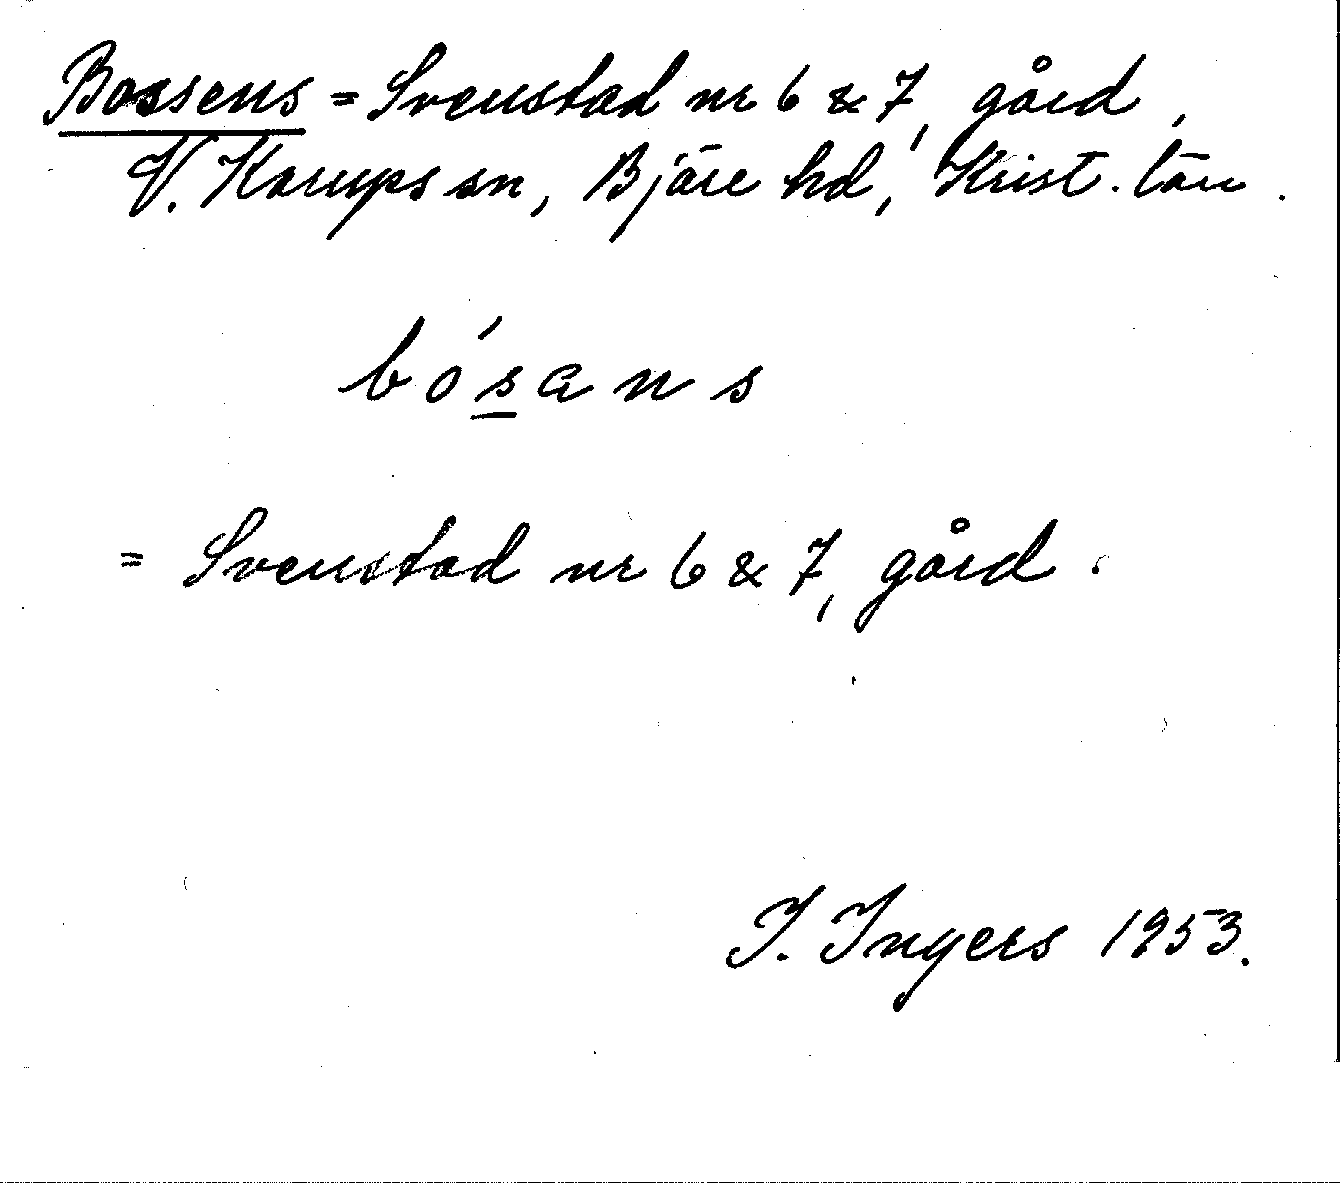 Bossens = Svenstad nr 6 & 7, gård,
V. Karups sn, Bjäre hd, Krist. län.
bósans
= Svenstad nr 6 & 7, gård.
I. Ingers 1953.